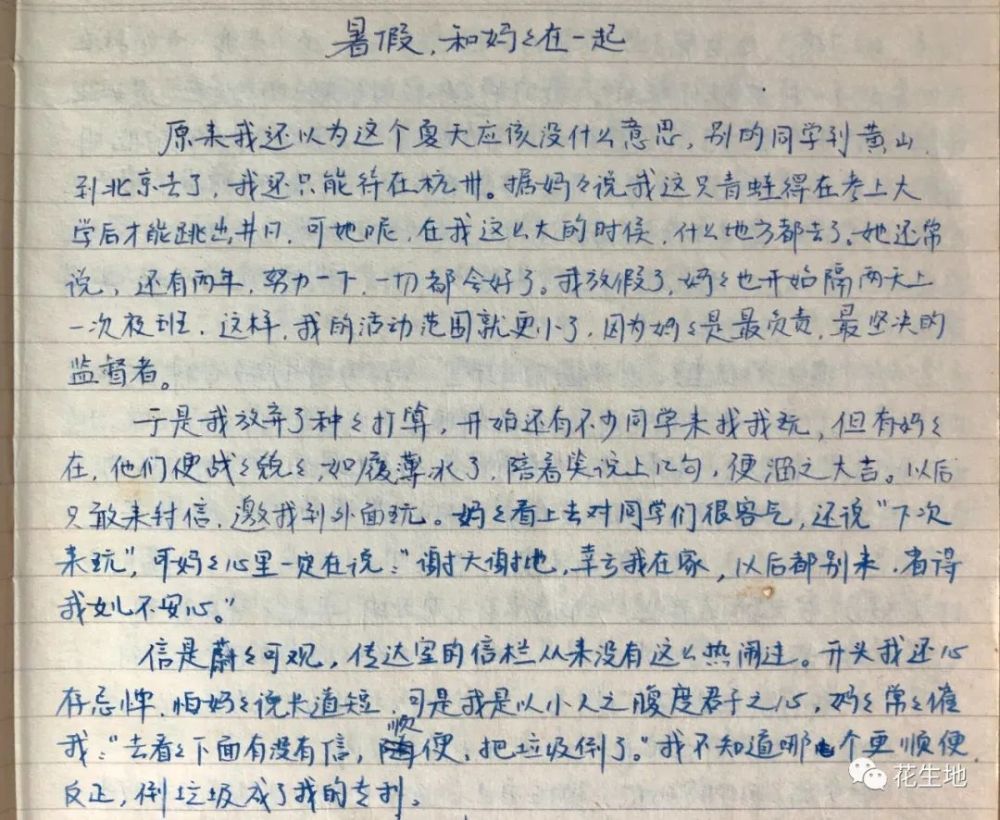 暑假，和妈々在一起
原来我还以为这个夏天应该没什么意思，别的同学到黄山、
到北京去了，我还只能待在杭州。据妈々说，我这只青蛙得在考上大
学后才能跳出井口，可她呢，在我这么大的时候，什么地方都去了。她还常
说，还有两年，努力一下，一切都会好了。我放假了，妈々也开始隔两天上
一次夜班，这样，我的活动范围就更小了，因为妈々是最负责，最坚决的
监督者。
于是我放弃了种々打算，开始还有不少同学来找我玩，但有妈々
在，他们便战々兢々，如履薄冰了，陪着笑说上几句，便溜之大吉。以后
只敢来封信，邀我到外面玩。妈々看上去对同学们很客气，还说“下次
来玩”，可妈々心里一定在说：“谢天谢地，幸亏我在家，以后都别来，省得
我女儿不安心。”
信是蔚々可观，传达室的信栏从来没有这么热闹过。开头我还心
存忌惮，怕妈々说长道短，可是我是以小人之腹度君子之心，妈々常々催
我：“去看々下面有没有信，顺便，把垃圾倒了。”我不知道哪个更顺便
反正，倒垃圾成了我的专利。
花生地